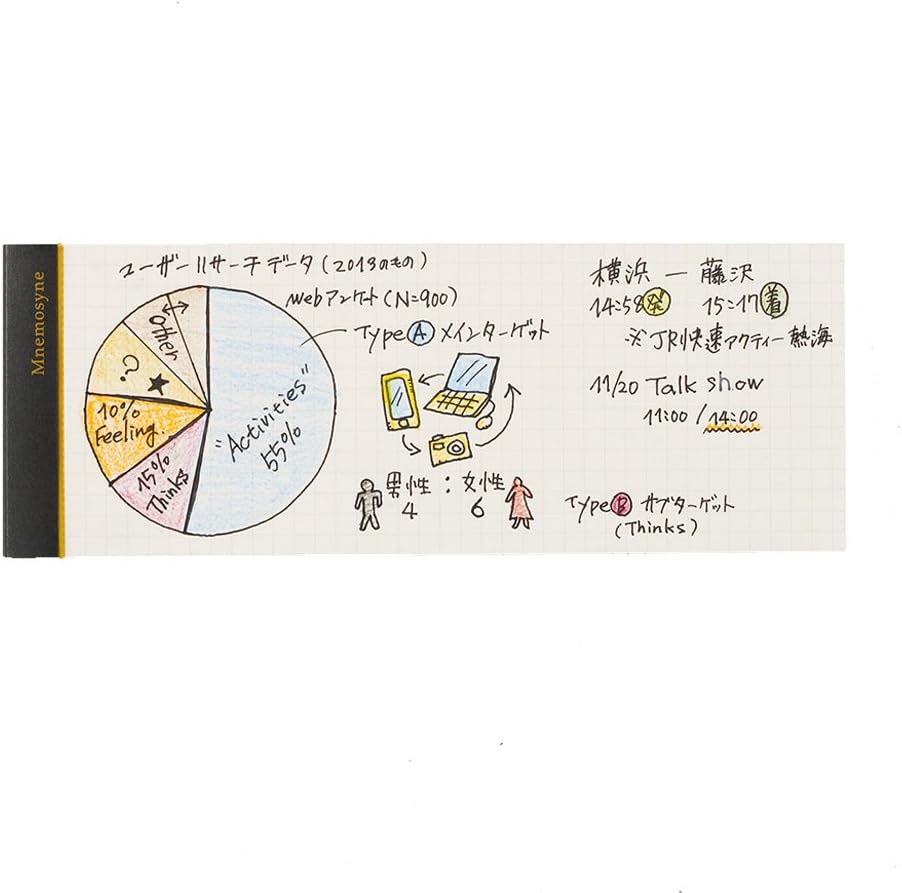 Mnemosyne
ユーザーリサーチデータ(2013のもの)
Webアンケート(N=900)
Type A メインターゲット
Other
?
10%
Feeling.
15%
Thinks
"Activities"
55%
男性 : 女性
4 6
横浜 ー 藤沢
14:58発 15:17着
※JR快速アクティー熱海
11/20 Talk show
11:00 / 14:00
Type B サブターゲット
(Thinks)